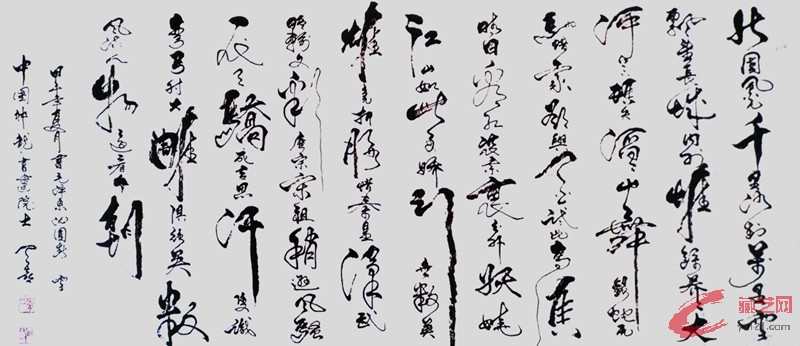 北国风光千里冰封万里雪
飘望长城内外惟余莽莽大
河上下顿失滔滔山舞银蛇原
驰蜡象欲与天公试比高须
晴日看红装素裹分外妖娆
江山如此多娇引无数英
雄竞折腰惜秦皇汉武
略输文采唐宗宋祖稍逊风骚
一代天骄成吉思汗只识
弯弓射大雕俱往矣数
风流人物还看今朝
甲午年夏月书毛泽东沁园春雪
中国神龙书画院士
藏艺网